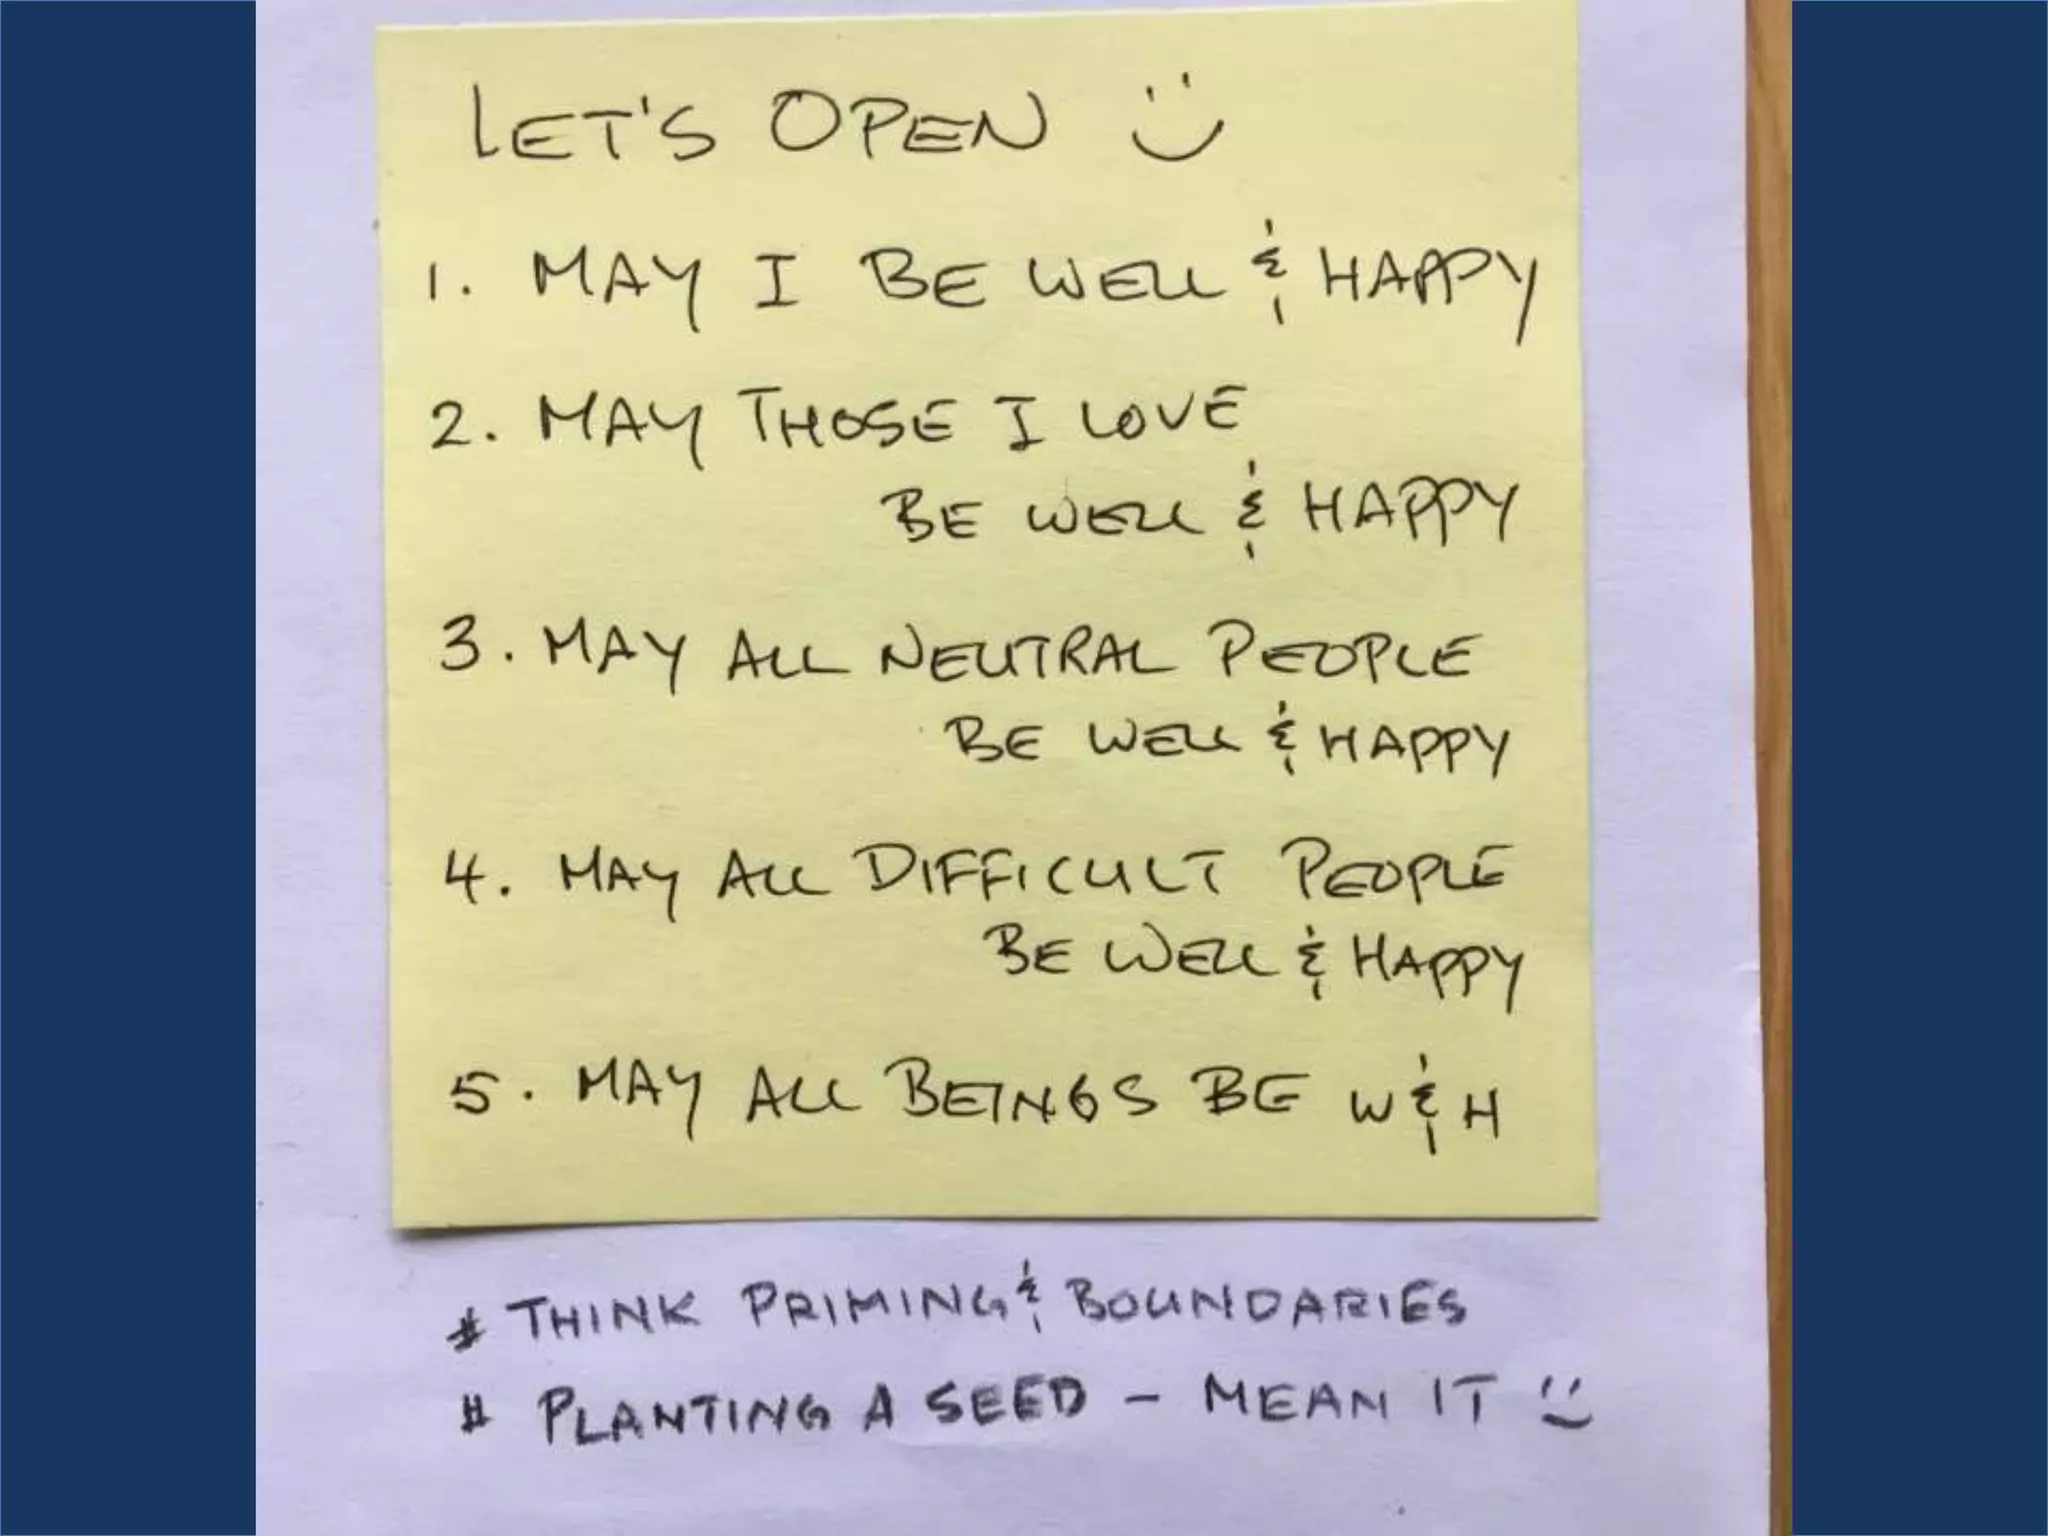 LET'S OPEN
1. MAY I BE WELL & HAPPY
2. MAY THOSE I LOVE
BE WELL & HAPPY
3. MAY ALL NEUTRAL PEOPLE
BE WELL & HAPPY
4. MAY ALL DIFFICULT PEOPLE
BE WELL & HAPPY
5. MAY ALL BEINGS BE W & H
# THINK PRIMING & BOUNDARIES
# PLANTING A SEED - MEAN IT